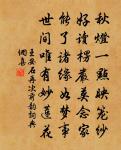 秋燈一點映籠紗
好讀楞嚴莫念家
能了諸緣如夢事
世間唯有妙蓮花
王安石再次前韵詞典
網